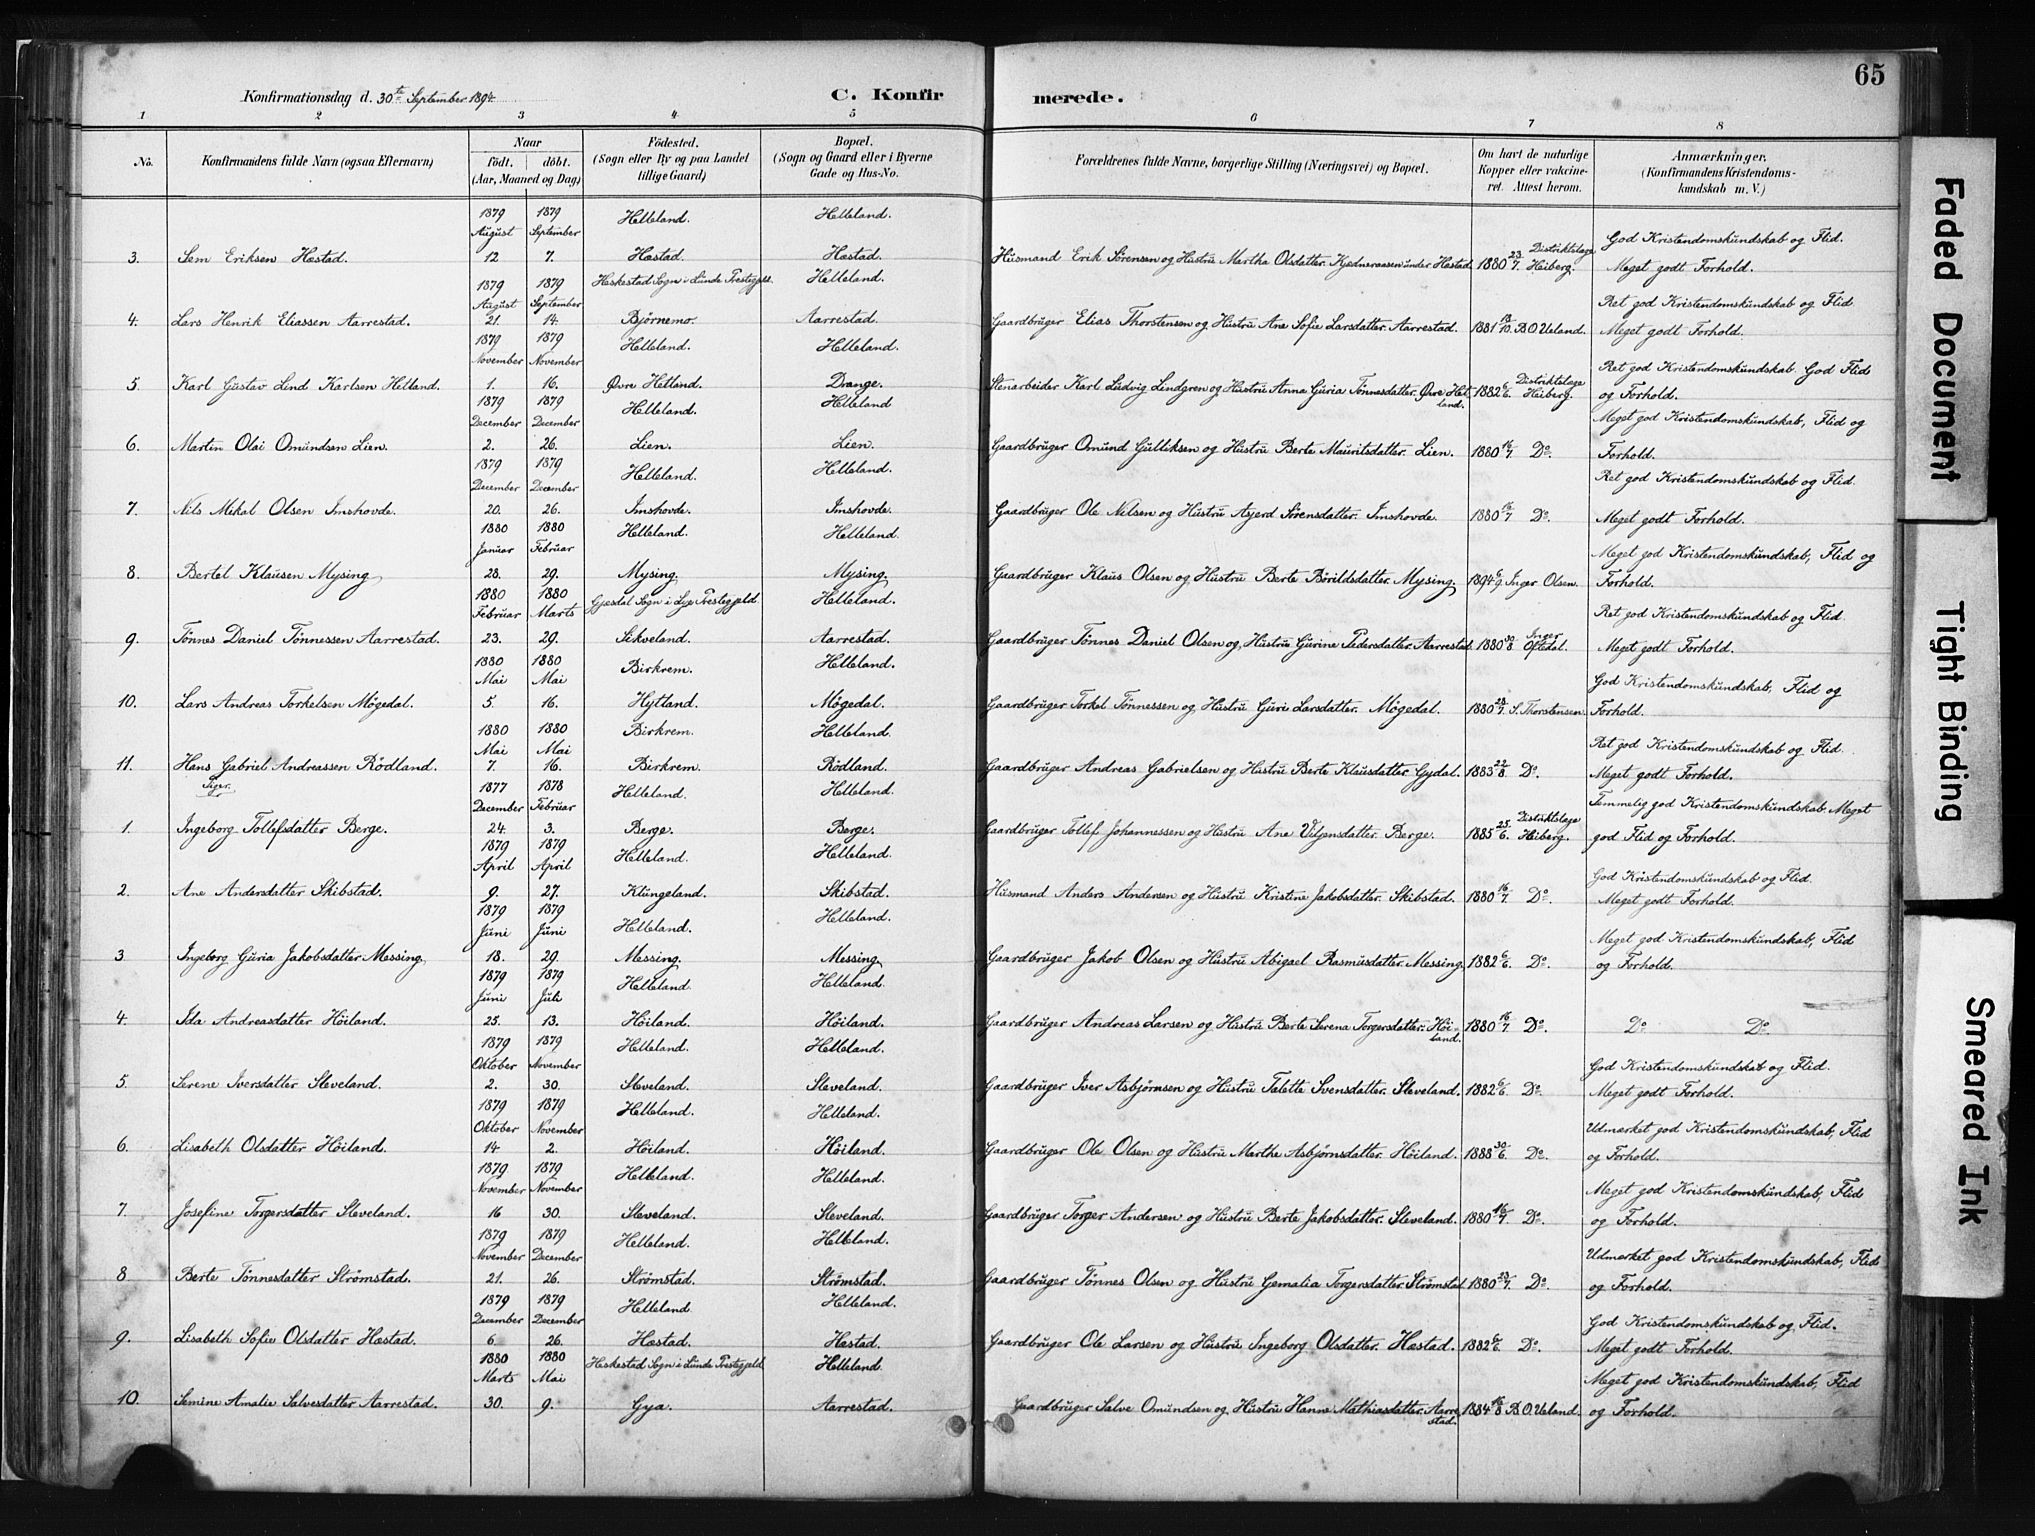 Konfirmationsdag d. 30te September 1894.
C. Konfirmerede.
65
1 2 3 4 5 6 7 8
No.
Konfirmandens fulde Navn (ogsaa Efternavn)
Naar
födt. döbt.
(Aar, Maaned og Dag)
Födested.
(Sogn eller By og paa Landet
tillige Gaard)
Bopæl.
(Sogn og Gaard eller i Byerne
Gade og Hus-No.
Forældrenes fulde Navne, borgerlige Stilling (Næringsvei) og Bopæl.
Om havt de naturlige
Kopper eller vakcine-
ret. Attest herom.
Anmærkninger.
(Konfirmandens Kristendoms-
kundskab m. V.)
1879 1879 Helleland. Helleland.
August September God Kristendomskundskab og Flid.
3. Sem Eriksen Hæstad. 12 7. Hæstad. Hæstad. Husmand Erik Sörensen og Hustru Martha Olsdatter. Kjödneraasen under Hæstad. 1880 23/7. Distriktslæge Heiberg. Meget godt Forhold.
1879 1879 Heskestad Sogn i Lunde Prestegjeld. Helleland.
August September Ret god Kristendomskundskab og Flid
4. Lars Henrik Eliassen Aarrestad. 21. 14. Björnemo. Aarrestad. Gaardbruger Elias Thorstensen og Hustru Ane Sofie Larsdatter. Aarrestad. 1881 18/10. B.O. Ueland. Meget godt Forhold.
1879 1879 Helleland. Helleland.
November November Ret god Kristendomskundskab. God Flid
5. Karl Gustav Lind Karlsen Hetland. 1. 16. Övre Hetland. Drange. Stenarbeider Karl Ludvig Lindgren og Hustru Anna Guria Tönnesdatter. Övre Hetland. 1882 6/6. Distriktslæge Heiberg. og Forhold.
1879 1879 Helleland. Helleland
December December Meget god Kristendomskundskab, Flid og
6. Martin Olai Omundsen Lien. 2. 26. Lien. Lien. Gaardbruger Omund Gulliksen og Hustru Berte Mauritsdatter. Lien. 1880 16/7 Do. Forhold.
1879 1879 Helleland. Helleland.
December December Ret god Kristendomskundskab og Flid.
7. Nils Mikal Olsen Imshovde. 20. 26. Imshovde. Imshovde. Gaardbruger Ole Nilsen og Hustru Asjerd Sörensdatter. Imshovde. 1880 16/7 Do. Meget godt Forhold.
1880 1880 Helleland. Helleland.
Januar Februar Meget god Kristendomskundskab, Flid og
8. Bertel Klausen Mysing 28. 29. Mysing. Mysing. Gaardbruger Klaus Olsen og Hustru Berte Börildsdatter. Mysing. 1894 6/9. Inger Olsen. Forhold.
1880 1880 Gjesdal Sogn i Lye Prestegjeld. Helleland.
Februar Marts Ret god Kristendomskundskab og Flid.
9. Tönnes Daniel Tönnessen Aarrestad. 23. 29. Sekveland. Aarrestad. Gaardbruger Tönnes Daniel Olsen og Hustru Gurine Pedersdatter. Aarrestad. 1880 30/8. Inger Oftedal. Meget godt Forhold.
1880 1880 Birkrem. Helleland.
Mai Mai God Kristendomskundskab, Flid og
10. Lars Andreas Torkelsen Mögedal. 5. 16. Hytland. Mögedal. Gaardbruger Torkel Tönnessen og Hustru Guri Larsdatter. Mögedal. 1880 28/7. S. Thorstensen. Forhold.
1880 1880 Birkrem. Helleland.
Mai Mai Ret god Kristendomskundskab og Flid.
11. Hans Gabriel Andreassen Rödland. 7. 16. Birkrem. Rödland. Gaardbruger Andreas Gabrielsen og Hustru Berte Klausdatter. Gydal. 1883 22/8 Do. Meget godt Forhold.
Piger.
1877 1878 Helleland. Helleland.
December Februar Temmelig god Kristendomskundskab. Meget
1. Ingeborg Tollefsdatter Berge. 24. 3. Berge. Berge. Gaardbruger Tollef Johannessen og Hustru Ane Viljensdatter. Berge. 1885 25/6. Distriktslæge Heiberg. god Flid og Forhold.
1879 1879 Helleland. Helleland.
April April God Kristendomskundskab og Flid.
2. Ane Andersdatter Skibstad. 9. 27. Klungeland. Skibstad. Husmand Anders Andersen og Hustru Kristine Jakobsdatter. Skibstad. 1880 16/7. Do. Meget godt Forhold.
1879 1879 Helleland. Helleland.
Juni Juni Meget god Kristendomskundskab, Flid
3 Ingeborg Guria Jakobsdatter Messing. 18. 29. Messing. Messing. Gaardbruger Jakob Olsen og Hustru Abigael Rasmusdatter. Messing. 1882 6/6. Do. og Forhold.
1879 1879 Helleland. Helleland.
Juni Juli
4. Ida Andreasdatter Höiland. 25. 13. Höiland. Höiland. Gaardbruger Andreas Larsen og Hustru Berte Serena Torgersdatter. Höiland. 1880 16/7 Do. Do Do.
1879 1879 Helleland. Helleland.
Oktober November God Kristendomskundskab og Flid.
5. Serene Iversdatter Sleveland. 2. 30. Sleveland. Sleveland. Gaardbruger Iver Asbjörnsen og Hustru Telette Svensdatter. Sleveland. 1882 6/6. Do. Meget godt Forhold.
1879 1879 Helleland. Helleland.
Oktober November Udmærket god Kristendomskundskab, Flid
6. Lisabeth Olsdatter Höiland. 14 2. Höiland. Höiland. Gaardbruger Ole Olsen og Hustru Marthe Asbjörnsdatter. Höiland. 1888 30/6. Do. og Forhold.
1879 1879 Helleland. Helleland.
November November Meget god Kristendomskundskab, Flid
7. Josefine Torgersdatter Sleveland. 16 30. Sleveland. Sleveland. Gaardbruger Torger Andersen og Hustru Berte Jakobsdatter. Sleveland. 1880 16/7. Do. og Forhold.
1879 1879 Helleland. Helleland.
November December Udmærket god Kristendomskundskab, Flid
8 Berte Tönnesdatter Strömstad. 21. 26. Strömstad. Strömstad. Gaardbruger Tönnes Olsen og Hustru Gemalia Torgersdatter. Strömstad. 1880 23/7. Do. og Forhold.
1879 1879 Helleland. Helleland.
December December God Kristendomskundskab og Flid.
9. Lisabeth Sofie Olsdatter Hæstad. 6. 26. Hæstad. Hæstad. Gaardbruger Ole Larsen og Hustru Ingeborg Olsdatter. Hæstad. 1882 6/6. Do. Meget godt Forhold.
1880 1880 Heskestad Sogn i Lunde Prestegjeld. Helleland.
Marts Mai Meget god Kristendomskundskab, Flid
10. Semine Amalie Salvesdatter Aarrestad. 30. 9. Gya. Aarrestad. Gaardbruger Salve Omundsen og Hustru Hanne Mathiasdatter. Aarrestad. 1884 16/8 B.O. Ueland. og Forhold.
Faded Document
Tight Binding
Smeared Ink